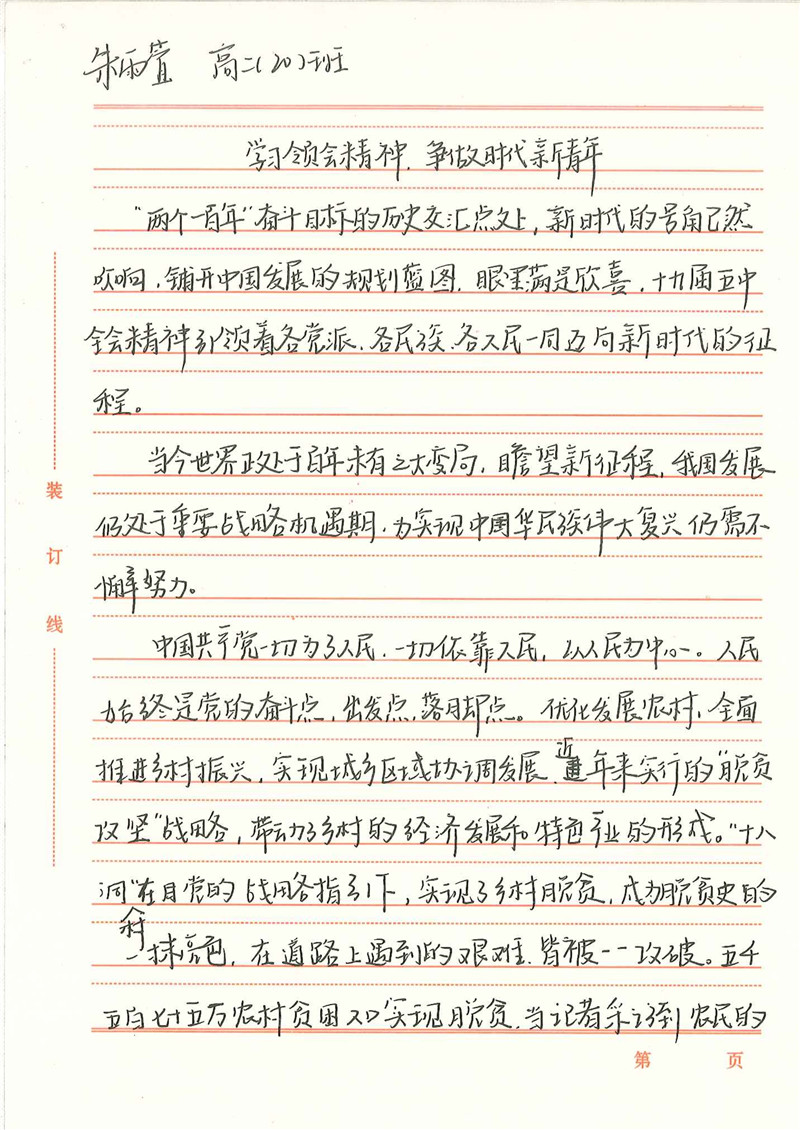 朱雨萱 高二(20)班
学习领会精神，争做时代新青年
“两个一百年”奋斗目标的历史交汇点处上，新时代的号角已然
吹响，铺开中国发展的规划蓝图，眼里满是欣喜，十九届五中
全会精神引领着各党派、各民族、各人民一同迈向新时代的征
程。
当今世界正处于百年未有之大变局，瞻望新征程，我国发展
仍处于重要战略机遇期，为实现中国华民族伟大复兴仍需不
懈努力。
中国共产党一切为了人民，一切依靠人民，以人民为中心。人民
始终是党的奋斗点，出发点，落脚点。优化发展农村，全面
推进乡村振兴，实现城乡区域协调发展，近年来实行的“脱贫
攻坚”战略，带动了乡村的经济发展和特色产业的形成。“十八
洞”村在党的战略指引下，实现了乡村脱贫，成为脱贫史的
一抹亮色，在道路上遇到的艰难，皆被一一攻破。五千
五百七十五万农村贫困人口实现脱贫，当记者采访到农民的
装
订
线
第 页